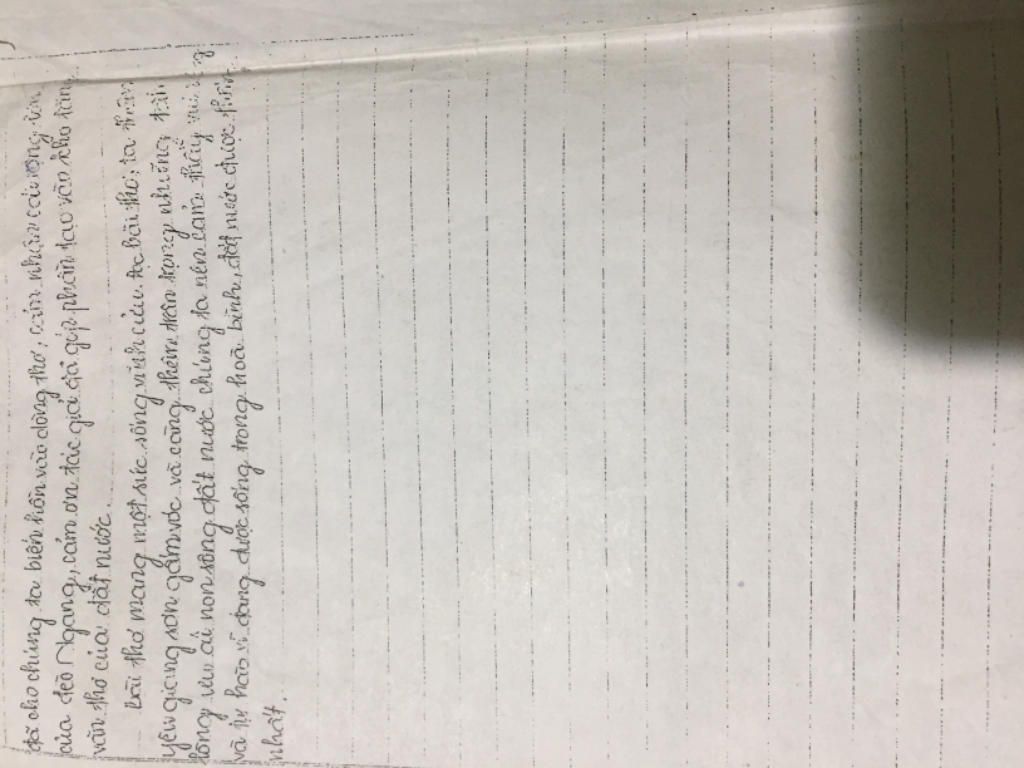 đã cho chúng ta biến hồn vào dòng thơ, cảm nhận cái
của đèo Ngang, cảm ơn tác giả đã góp phần tạo vào kho tàng
văn thơ của đất nước.
Bài thơ mang một sức sống vĩnh cửu. đọc bài thơ, ta thêm
yêu giang sơn gấm vóc và càng thêm trân trọng những tấm
lòng ưu ái non sông đất nước chúng ta nên cảm thấy
và tự hào vì đang được sống trong hoà bình, đất nước được
nhất.